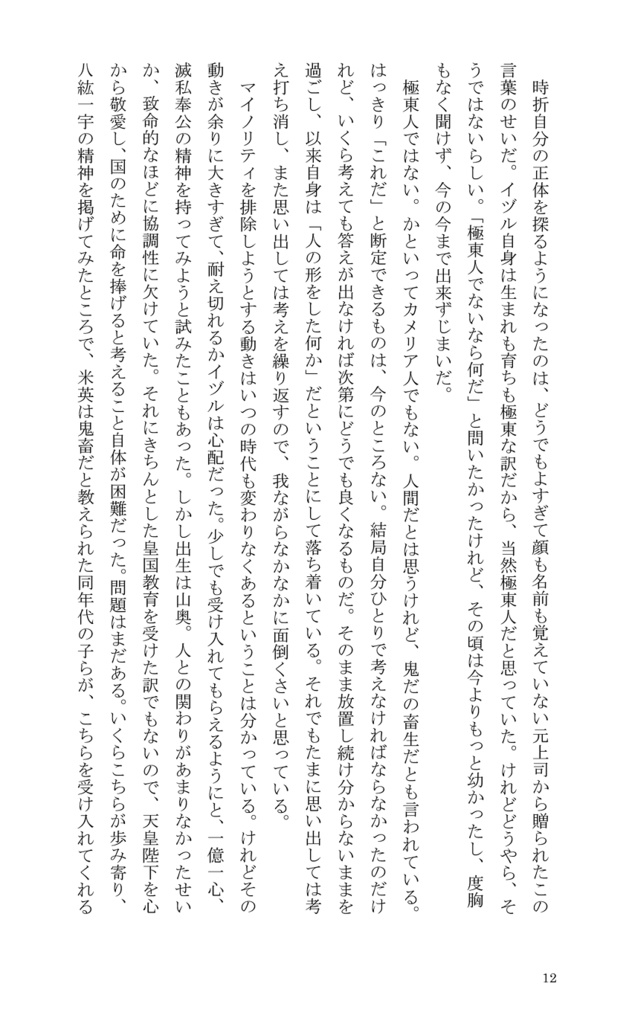 時折自分の正体を探るようになったのは、どうでもよすぎて顔も名前も覚えていない元上司から贈られたこの
言葉のせいだ。イヅル自身は生まれも育ちも極東な訳だから、当然極東人だと思っていた。けれどどうやら、そ
うではないらしい。「極東人でないなら何だ」と問いたかったけれど、その頃は今よりもっと幼かったし、度胸
もなく聞けず、今の今まで出来ずじまいだ。
極東人ではない。かといってカメリア人でもない。人間だとは思うけれど、鬼だの畜生だとも言われている。
はっきり「これだ」と断定できるものは、今のところない。結局自分ひとりで考えなければならなかったのだけ
れど、いくら考えても答えが出なければ次第にどうでも良くなるものだ。そのまま放置し続け分からないままを
過ごし、以来自身は「人の形をした何か」だということにして落ち着いている。それでもたまに思い出しては考
え打ち消し、また思い出しては考えを繰り返すので、我ながらなかなかに面倒くさいと思っている。
マイノリティを排除しようとする動きはいつの時代も変わりなくあるということは分かっている。けれどその
動きが余りに大きすぎて、耐え切れるかイヅルは心配だった。少しでも受け入れてもらえるようにと、一億一心、
滅私奉公の精神を持ってみようと試みたこともあった。しかし出生は山奥。人との関わりがあまりなかったせい
か、致命的なほどに協調性に欠けていた。それにきちんとした皇国教育を受けた訳でもないので、天皇陛下を心
から敬愛し、国のために命を捧げると考えること自体が困難だった。問題はまだある。いくらこちらが歩み寄り、
八紘一宇の精神を掲げてみたところで、米英は鬼畜だと教えられた同年代の子らが、こちらを受け入れてくれる
12